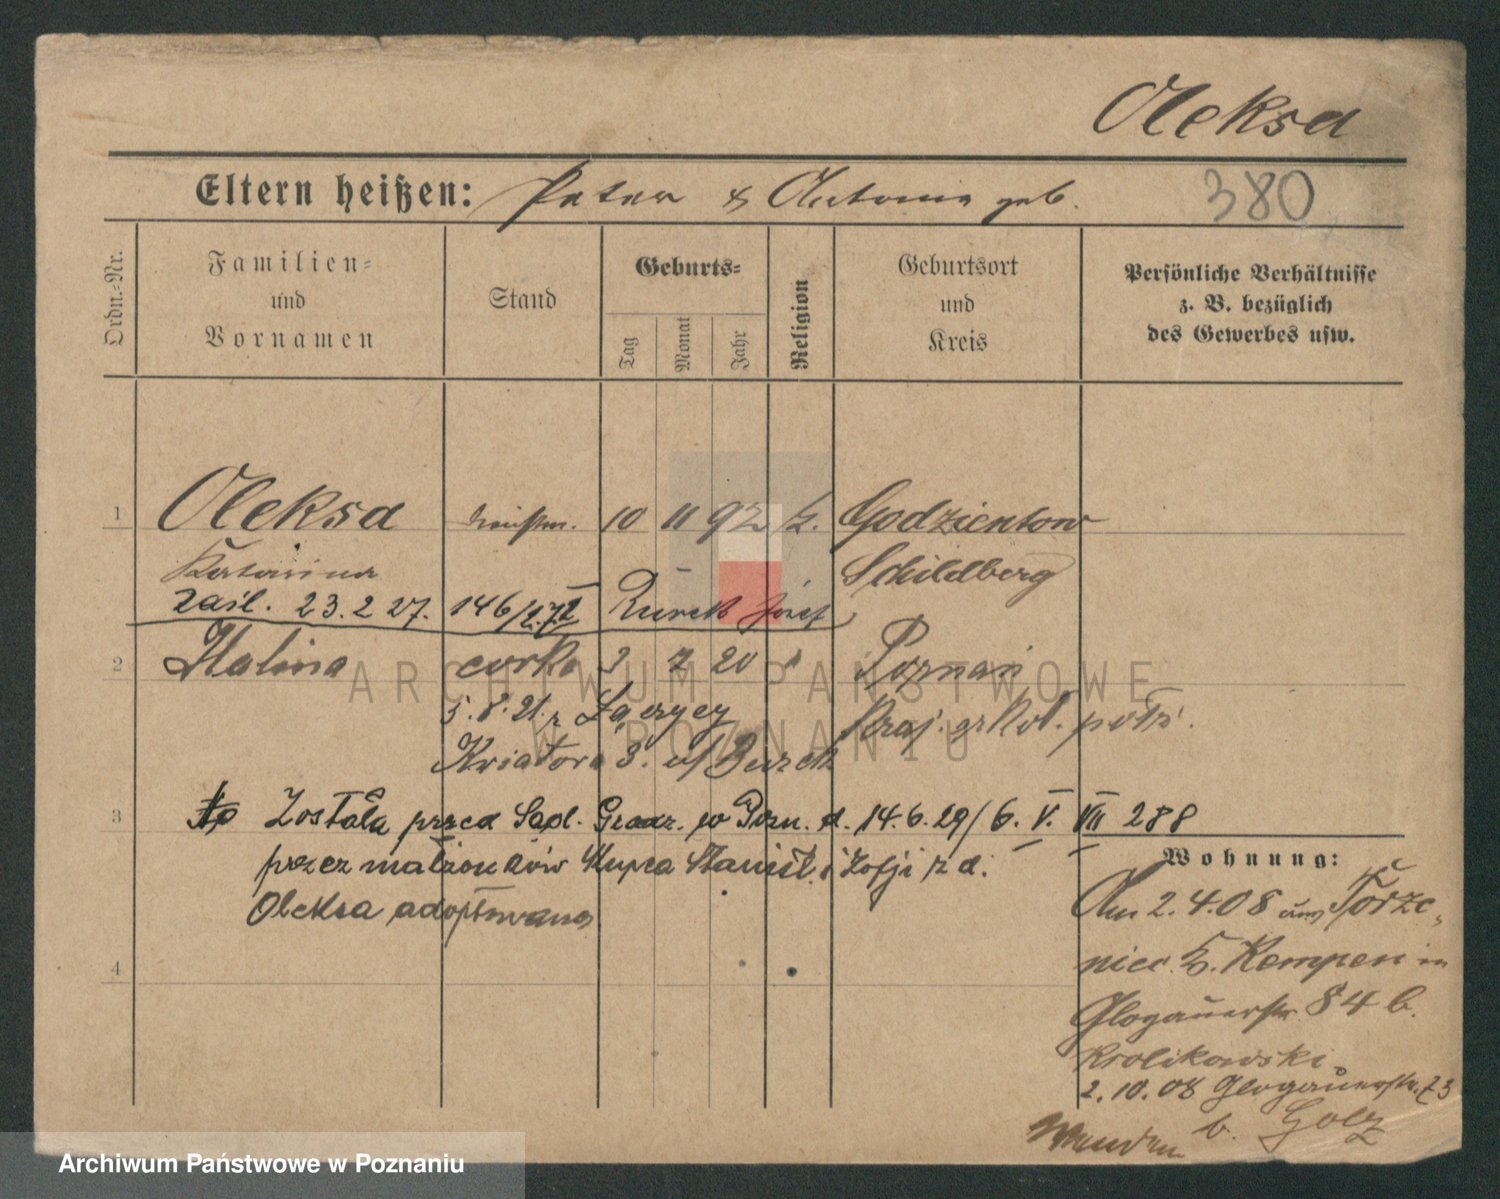 Oleksa
Eltern heißen: Peter & Antonie geb.
380
Ordn.-Nr.
Familien-
und
Vornamen
Stand
Geburts-
Tag
Monat
Jahr
Religion
Geburtsort
und
Kreis
Persönliche Verhältnisse
z. B. bezüglich
des Gewerbes usw.
1 Oleksa 10 11 92 k. Godzientow
Katarina Schildberg
zaśl. 23.2 27. 146/27 Burek Józef
2 Halina córka 3 7 20 " Poznań
5.8.21. z
Kwiatora 3. u/ Burek
3 Została przed Sąd. Grodz. w Pozn. d. 14.6.29/6. V. VII 288
przez małżonków Kupca Stanisł. i Zofji z d.
Oleksa adoptowana
4
Wohnung:
Am 2.4.08 aus Torze-
niec K. Kempen in
Glogauerstr. 84 b.
Krolikowski
2.10.08 Glogauerstr. 73
b. Golz
ARCHIWUM PAŃSTWOWE
W POZNANIU
Archiwum Państwowe w Poznaniu